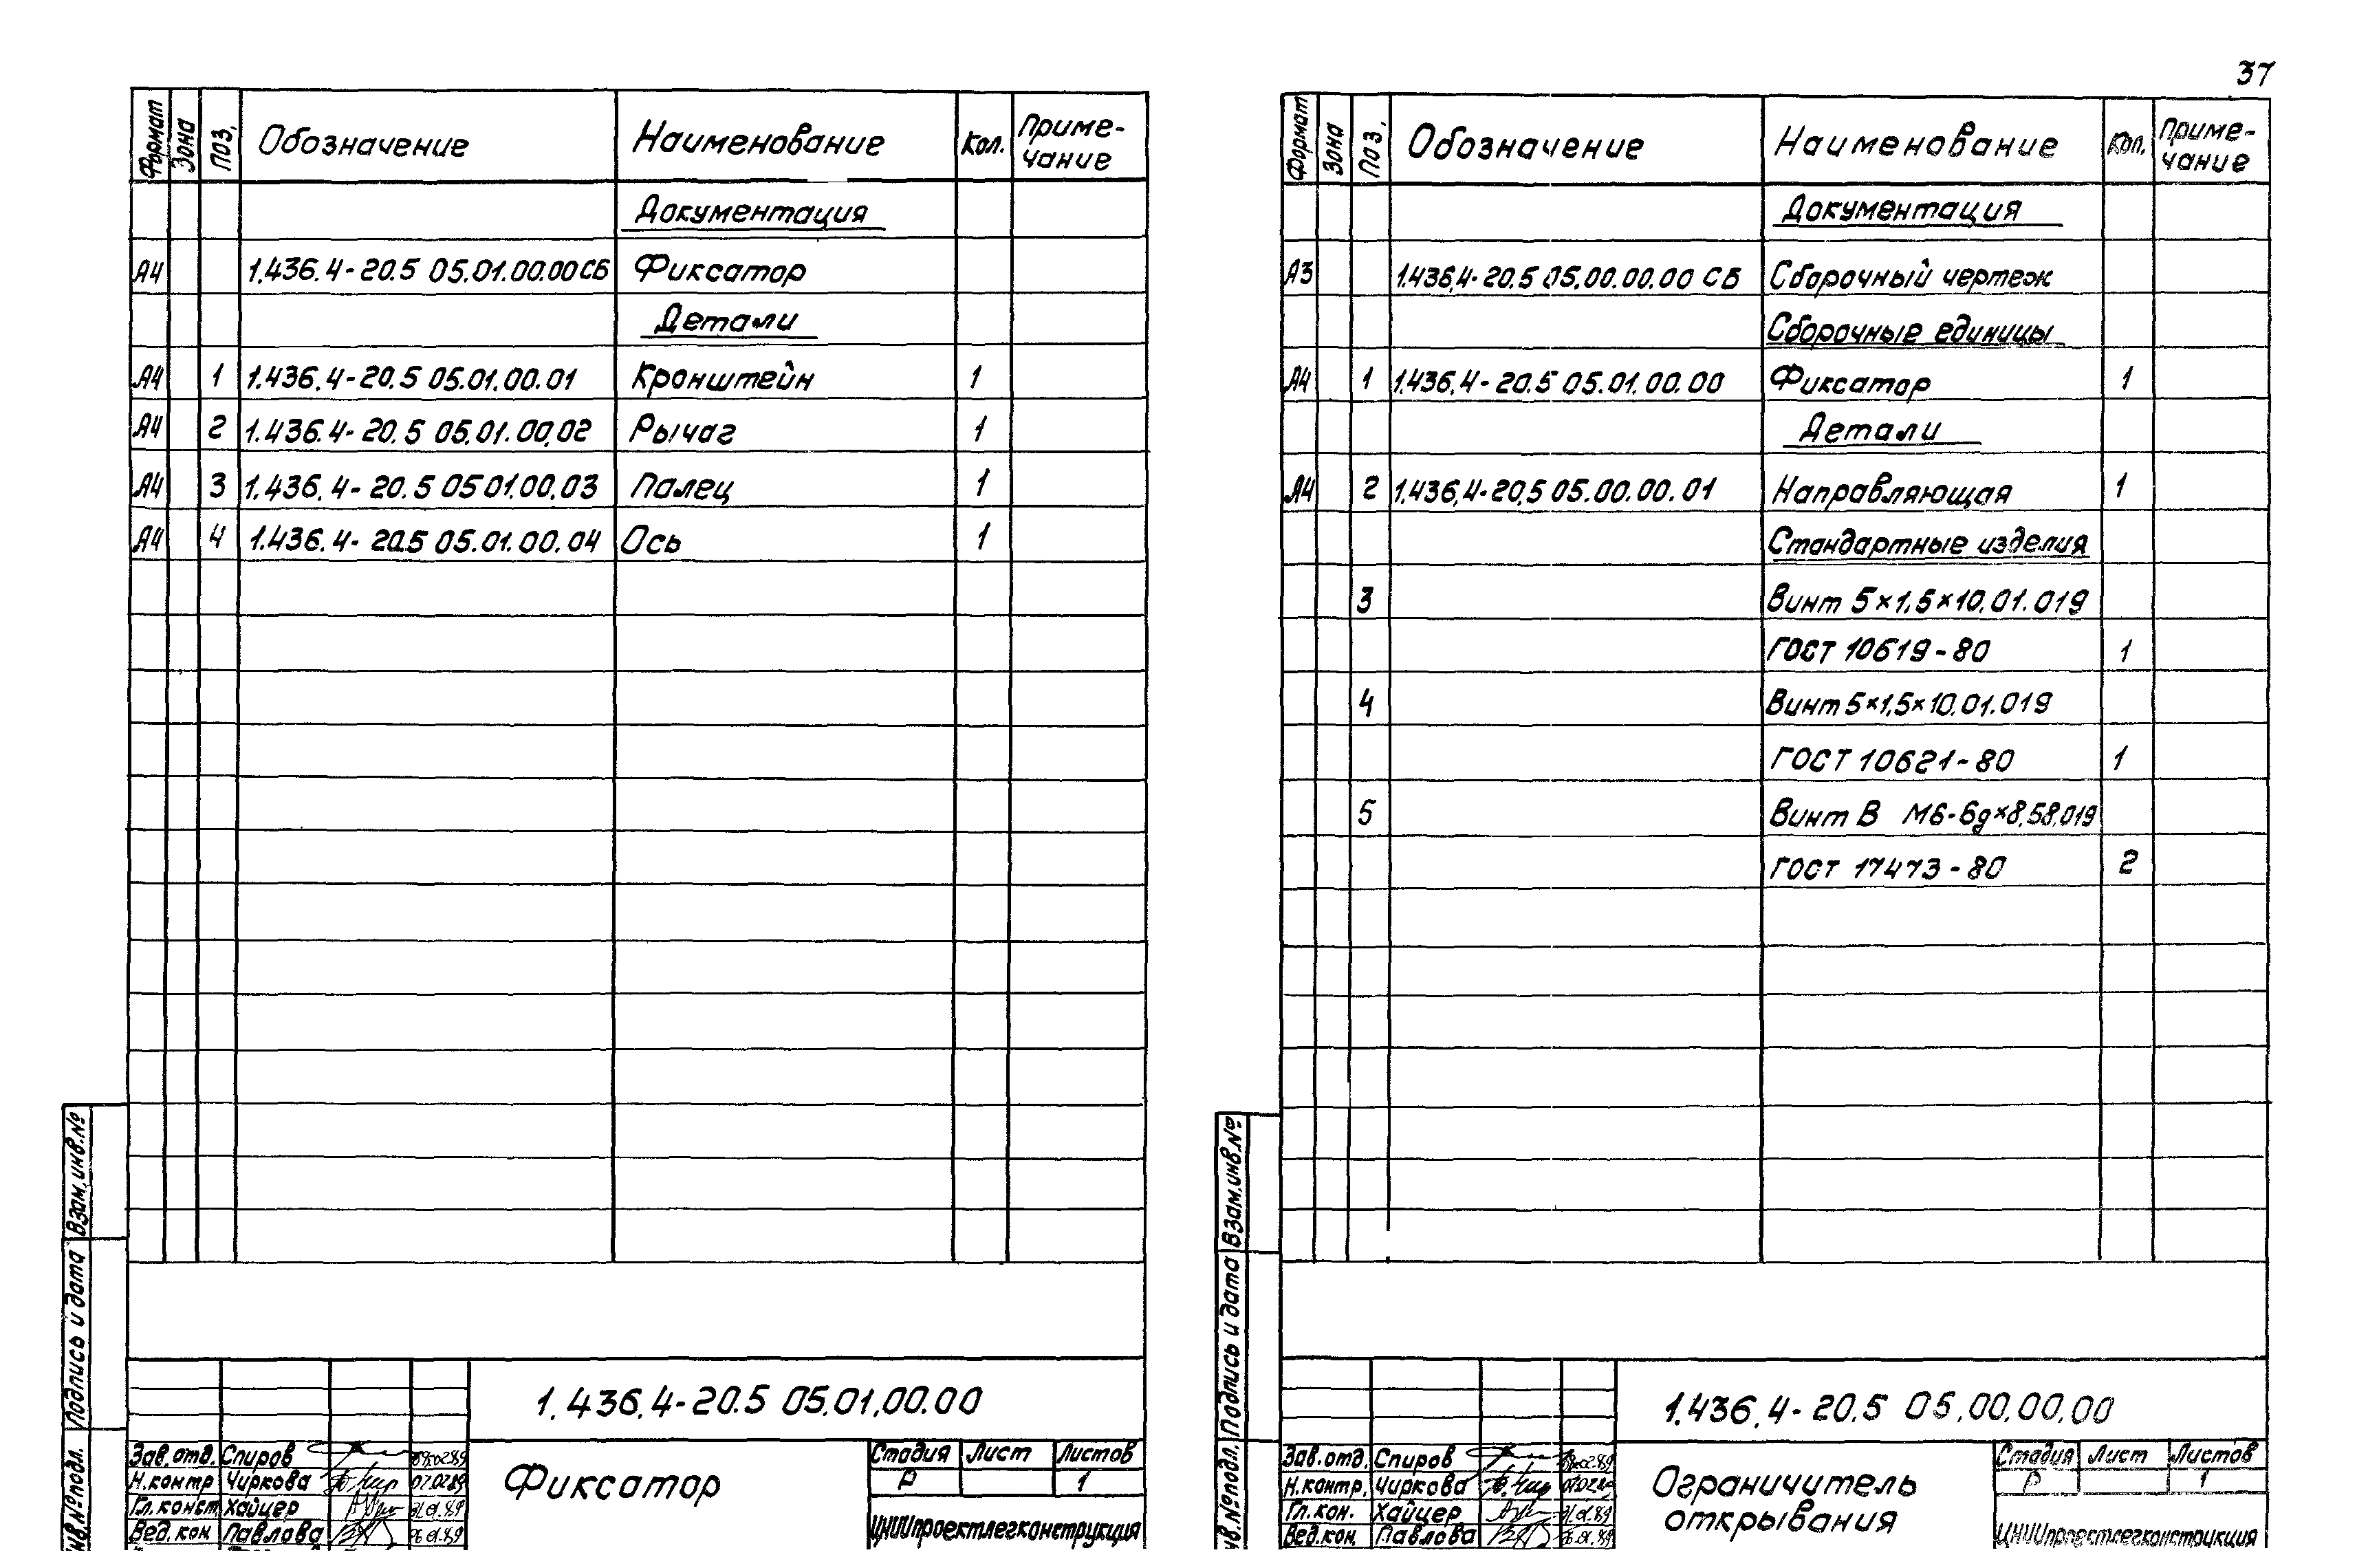 37
Формат Зона Поз. Обозначение Наименование Кол. Приме-
чание
Документация
А4 1.436.4-20.5 05.01.00.00СБ Фиксатор
Детали
А4 1 1.436.4-20.5 05.01.00.01 Кронштейн 1
А4 2 1.436.4-20.5 05.01.00.02 Рычаг 1
А4 3 1.436.4-20.5 05 01.00.03 Палец 1
А4 4 1.436.4-20.5 05.01.00.04 Ось 1
Взам.инв.№
Подпись и дата
Инв.№подл.
1.436.4-20.5 05.01.00.00
Зав.отд. Спиров
Н.контр Чиркова 07.02.89
Гл.конст. Хайцер
Вед.кон. Павлова
Фиксатор
Стадия Лист Листов
Р 1
ЦНИИпроектлегконструкция
Формат Зона Поз. Обозначение Наименование Кол. Приме-
чание
Документация
А3 1.436.4-20.5 05.00.00.00 СБ Сборочный чертеж
Сборочные единицы
А4 1 1.436.4-20.5 05.01.00.00 Фиксатор 1
Детали
А4 2 1.436.4-20.5 05.00.00.01 Направляющая 1
Стандартные изделия
3 Винт 5×1,5×10.01.019
ГОСТ 10619-80 1
4 Винт 5×1,5×10.01.019
ГОСТ 10621-80 1
5 Винт В М6-6g×8.58.019
ГОСТ 17473-80 2
Взам.инв.№
Подпись и дата
Инв.№подл.
1.436.4-20.5 05.00.00.00
Зав.отд. Спиров
Н.контр. Чиркова 07.02.89
Гл.кон. Хайцер
Вед.кон. Павлова
Ограничитель
открывания
Стадия Лист Листов
Р 1
ЦНИИпроектлегконструкция